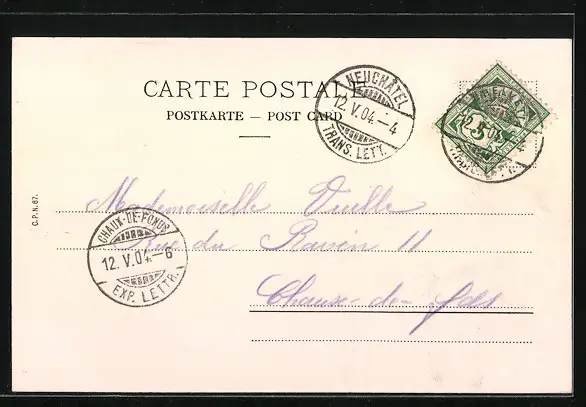 CARTE POSTALE
POSTKARTE — POST CARD
NEUCHÂTEL
12.V.04.–4
TRANS. LETT.
5
Mademoiselle Vuille
Rue du Ravin 11
Chaux-de-fds
CHAUX-DE-FONDS
12.V.04.–6
EXP. LETTR.
C.P.N. 67.